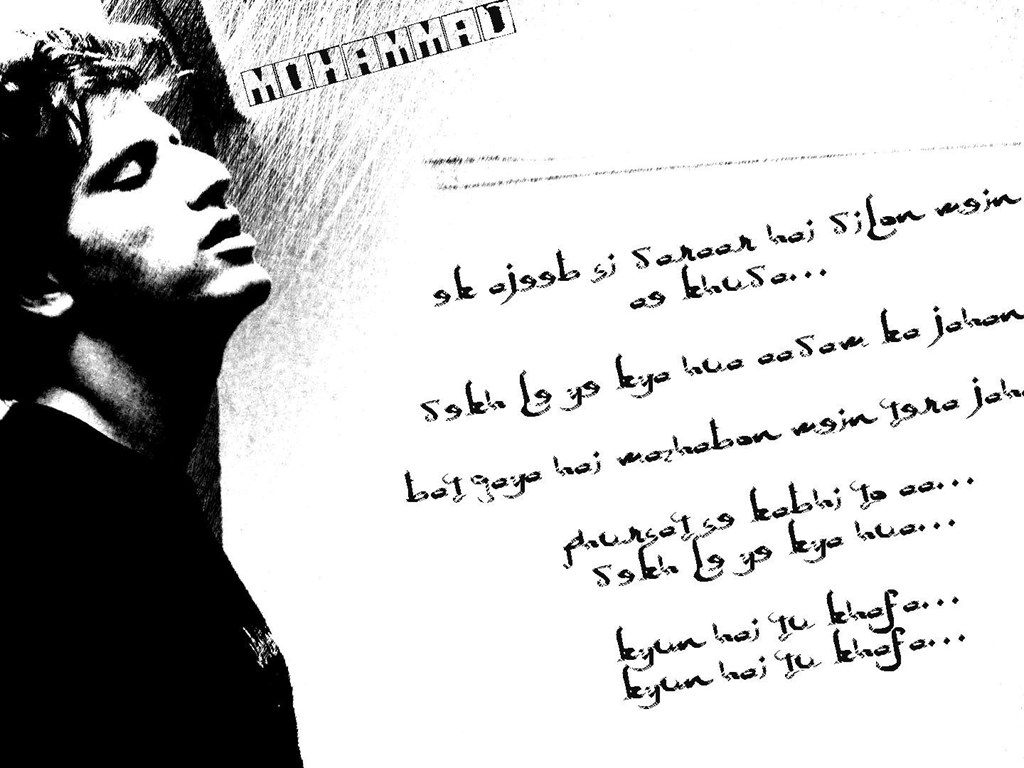 MOHAMMAD
ek ajeeb si daraar hai dilon mein
ae khuda...
dekh le ye kya hua aadam ka jahan
bat gaya hai mazhabon mein tera jaha
phursat se kabhi to aa...
dekh le ye kya hua...
kyun hai tu khafa...
kyun hai tu khafa...